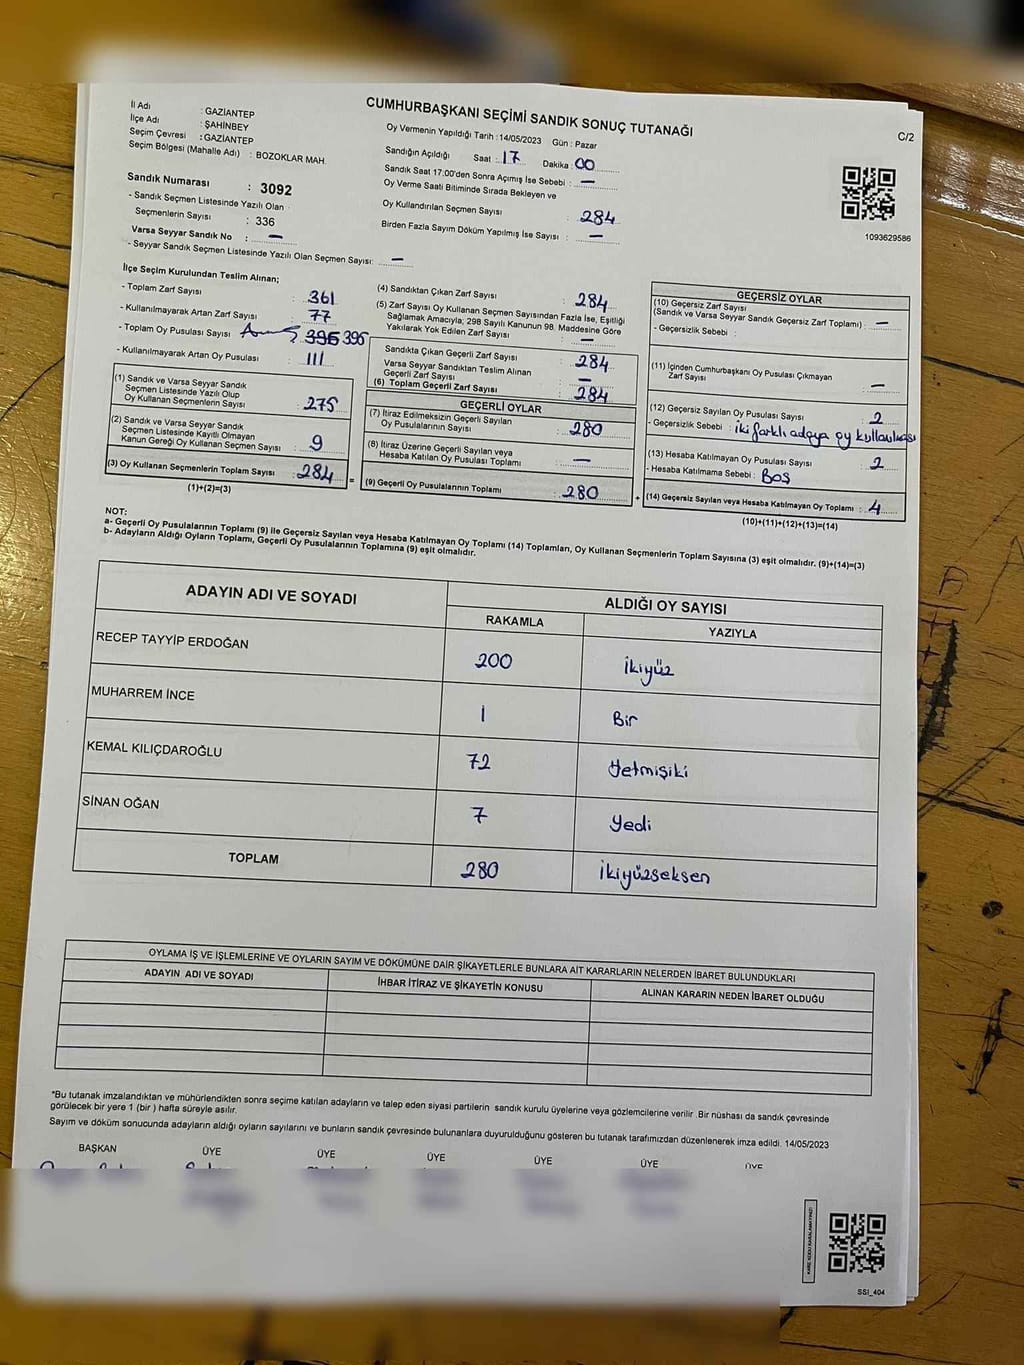 CUMHURBAŞKANI SEÇİMİ SANDIK SONUÇ TUTANAĞI
C/2
İl Adı : GAZİANTEP
İlçe Adı : ŞAHİNBEY
Seçim Çevresi : GAZİANTEP
Seçim Bölgesi (Mahalle Adı) : BOZOKLAR MAH.
Sandık Numarası : 3092
- Sandık Seçmen Listesinde Yazılı Olan
Seçmenlerin Sayısı : 336
Varsa Seyyar Sandık No : —
- Seyyar Sandık Seçmen Listesinde Yazılı Olan Seçmen Sayısı: —
Oy Vermenin Yapıldığı Tarih :14/05/2023 Gün : Pazar
Sandığın Açıldığı Saat : 17 Dakika : 00
Sandık Saat 17:00'den Sonra Açımış İse Sebebi : —
Oy Verme Saati Bitiminde Sırada Bekleyen ve
Oy Kullandırılan Seçmen Sayısı : 284
Birden Fazla Sayım Döküm Yapılmış İse Sayısı : —
1093629586
İlçe Seçim Kurulundan Teslim Alınan;
- Toplam Zarf Sayısı : 361
- Kullanılmayarak Artan Zarf Sayısı : 77
- Toplam Oy Pusulası Sayısı 395 395
- Kullanılmayarak Artan Oy Pusulası : 111
(1) Sandık ve Varsa Seyyar Sandık
Seçmen Listesinde Yazılı Olup
Oy Kullanan Seçmenlerin Sayısı : 275
(2) Sandık ve Varsa Seyyar Sandık
Seçmen Listesinde Kayıtlı Olmayan
Kanun Gereği Oy Kullanan Seçmen Sayısı : 9
(3) Oy Kullanan Seçmenlerin Toplam Sayısı : 284
(1)+(2)=(3)
(4) Sandıktan Çıkan Zarf Sayısı : 284
(5) Zarf Sayısı Oy Kullanan Seçmen Sayısından Fazla İse, Eşitliği
Sağlamak Amacıyla; 298 Sayılı Kanunun 98. Maddesine Göre
Yakılarak Yok Edilen Zarf Sayısı : —
Sandıkta Çıkan Geçerli Zarf Sayısı : 284
Varsa Seyyar Sandıktan Teslim Alınan
Geçerli Zarf Sayısı : —
(6) Toplam Geçerli Zarf Sayısı : 284
GEÇERLİ OYLAR
(7) İtiraz Edilmeksizin Geçerli Sayılan
Oy Pusulalarının Sayısı : 280
(8) İtiraz Üzerine Geçerli Sayılan veya
Hesaba Katılan Oy Pusulası Toplamı : —
(9) Geçerli Oy Pusulalarının Toplamı : 280
GEÇERSİZ OYLAR
(10) Geçersiz Zarf Sayısı
(Sandık ve Varsa Seyyar Sandık Geçersiz Zarf Toplamı) : —
- Geçersizlik Sebebi :
(11) İçinden Cumhurbaşkanı Oy Pusulası Çıkmayan
Zarf Sayısı : —
(12) Geçersiz Sayılan Oy Pusulası Sayısı : 2
- Geçersizlik Sebebi : iki farklı adaya oy kullanılması
(13) Hesaba Katılmayan Oy Pusulası Sayısı : 2
- Hesaba Katılmama Sebebi : Boş
(14) Geçersiz Sayılan veya Hesaba Katılmayan Oy Toplamı : 4
(10)+(11)+(12)+(13)=(14)
NOT:
a- Geçerli Oy Pusulalarının Toplamı (9) ile Geçersiz Sayılan veya Hesaba Katılmayan Oy Toplamı (14) Toplamları, Oy Kullanan Seçmenlerin Toplam Sayısına (3) eşit olmalıdır. (9)+(14)=(3)
b- Adayların Aldığı Oyların Toplamı, Geçerli Oy Pusulalarının Toplamına (9) eşit olmalıdır.
ADAYIN ADI VE SOYADI
ALDIĞI OY SAYISI
RAKAMLA YAZIYLA
RECEP TAYYİP ERDOĞAN 200 İkiyüz
MUHARREM İNCE 1 Bir
KEMAL KILIÇDAROĞLU 72 Yetmişiki
SİNAN OĞAN 7 Yedi
TOPLAM 280 İkiyüzseksen
OYLAMA İŞ VE İŞLEMLERİNE VE OYLARIN SAYIM VE DÖKÜMÜNE DAİR ŞİKAYETLERLE BUNLARA AİT KARARLARIN NELERDEN İBARET BULUNDUKLARI
ADAYIN ADI VE SOYADI İHBAR İTİRAZ VE ŞİKAYETİN KONUSU ALINAN KARARIN NEDEN İBARET OLDUĞU
*Bu tutanak imzalandıktan ve mühürlendikten sonra seçime katılan adayların ve talep eden siyasi partilerin sandık kurulu üyelerine veya gözlemcilerine verilir .Bir nüshası da sandık çevresinde
görülecek bir yere 1 (bir ) hafta süreyle asılır.
Sayım ve döküm sonucunda adayların aldığı oyların sayılarını ve bunların sandık çevresinde bulunanlara duyurulduğunu gösteren bu tutanak tarafımızdan düzenlenerek imza edildi. 14/05/2023
BAŞKAN ÜYE ÜYE ÜYE ÜYE ÜYE ÜYE
SSI_404